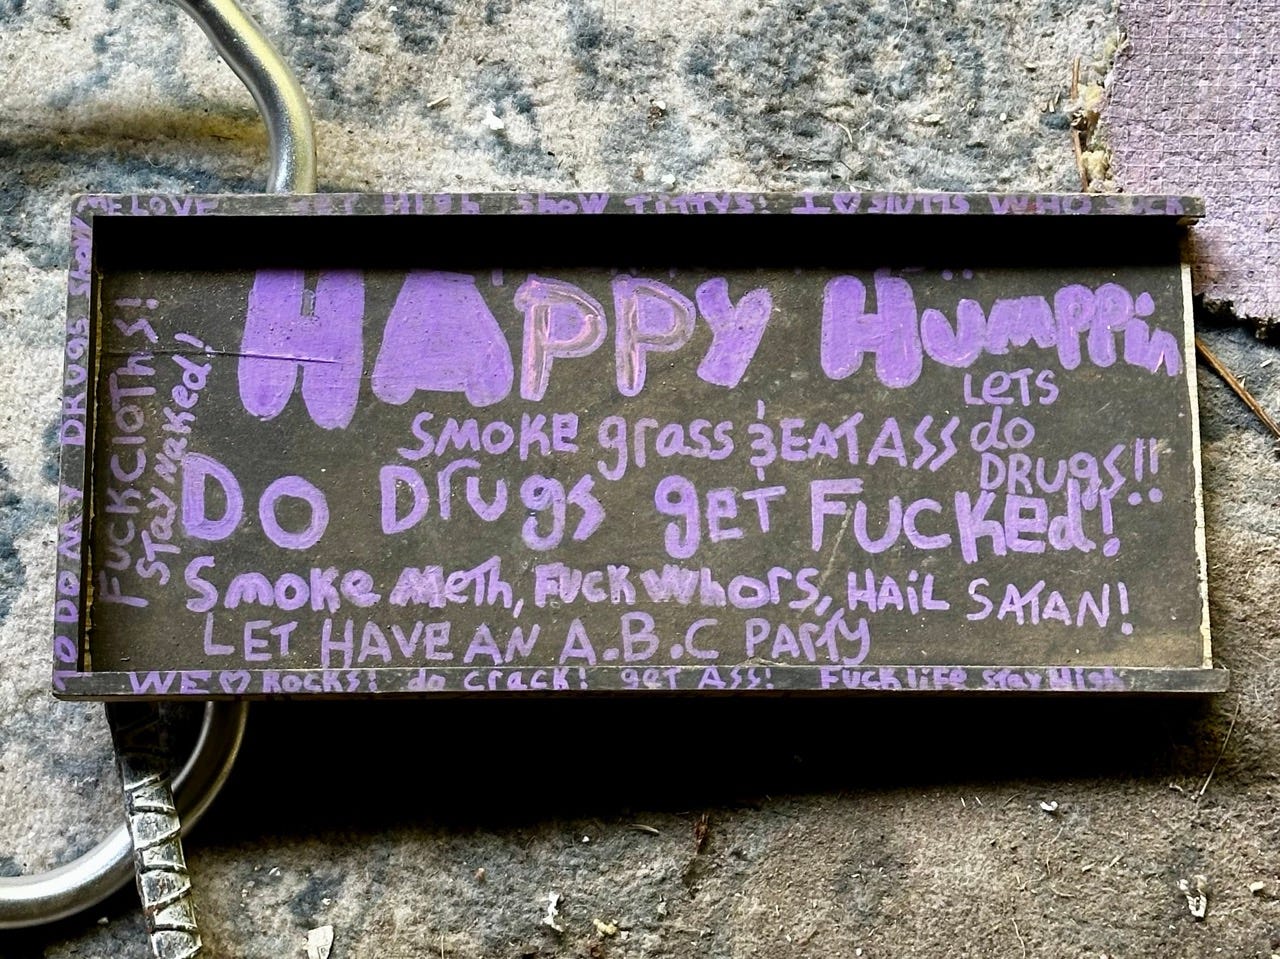 ME LOVE GET HIGH SHOW TITTYS! I ♡ SlUTTS WHO SUCK
HAPPY HUMPPin
SMOKE grass & EAT ASS
LETS
do
DRUGS!!
Do Drugs geT FUCKed!
Smoke Meth, FUCK Whors, HAiL SATAN!
LET HAVE AN A.B.C PArTy
FUCK CloThs!
STay Naked!
TO DO MY DRUGS Show
WE ♡ Rocks! do crack! get Ass! Fuck life stay High